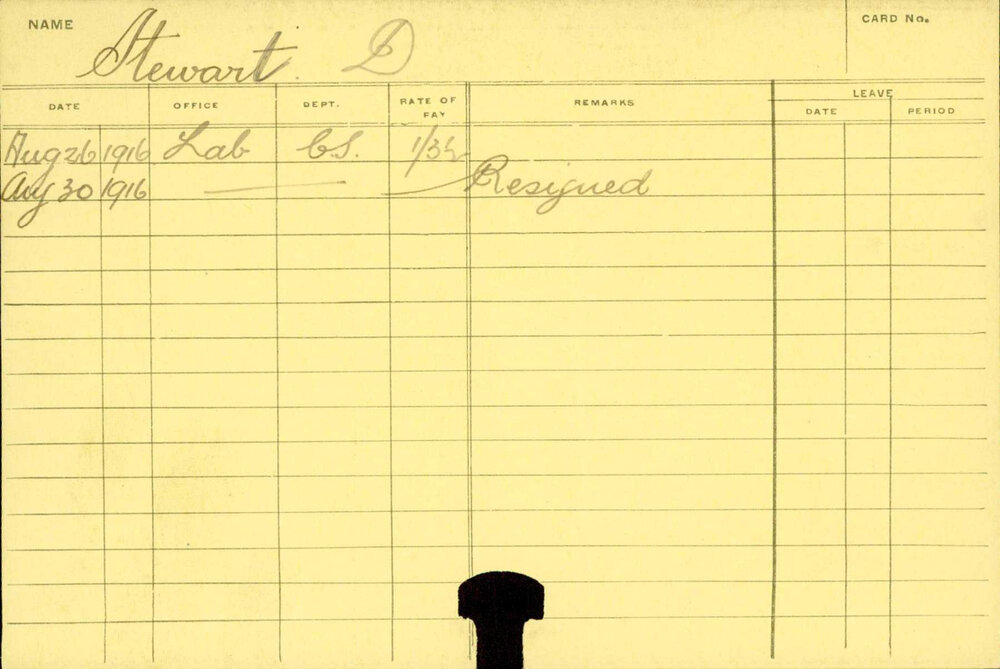 NAME Stewart. D CARD No.
DATE OFFICE DEPT. RATE OF PAY REMARKS LEAVE
DATE PERIOD
Aug 26 1916 Lab C.S. 1/3½
Aug 30 1916 — Resigned